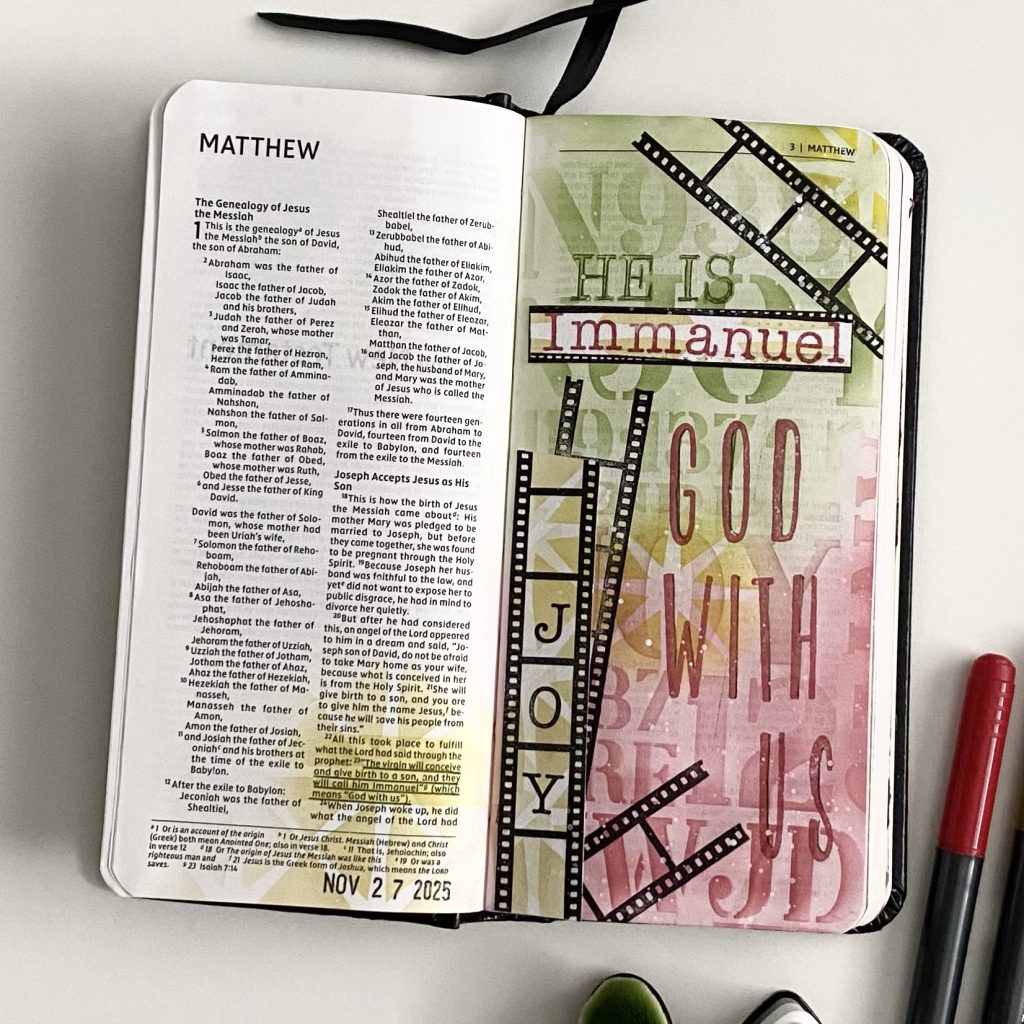 MATTHEW
The Genealogy of Jesus
the Messiah
1 This is the genealogyᵃ of Jesus
the Messiahᵇ the son of David,
the son of Abraham:
²Abraham was the father of
Isaac,
Isaac the father of Jacob,
Jacob the father of Judah
and his brothers,
³Judah the father of Perez
and Zerah, whose mother
was Tamar,
Perez the father of Hezron,
Hezron the father of Ram,
⁴Ram the father of Ammina-
dab,
Amminadab the father of
Nahshon,
Nahshon the father of Sal-
mon,
⁵Salmon the father of Boaz,
whose mother was Rahab,
Boaz the father of Obed,
whose mother was Ruth,
Obed the father of Jesse,
⁶and Jesse the father of King
David.
David was the father of Solo-
mon, whose mother had
been Uriah's wife,
⁷Solomon the father of Reho-
boam,
Rehoboam the father of Abi-
jah,
Abijah the father of Asa,
⁸Asa the father of Jehosha-
phat,
Jehoshaphat the father of
Jehoram,
Jehoram the father of Uzziah,
⁹Uzziah the father of Jotham,
Jotham the father of Ahaz,
Ahaz the father of Hezekiah,
¹⁰Hezekiah the father of Ma-
nasseh,
Manasseh the father of
Amon,
Amon the father of Josiah,
¹¹and Josiah the father of Jec-
oniahᶜ and his brothers at
the time of the exile to
Babylon.
¹²After the exile to Babylon:
Jeconiah was the father of
Shealtiel,
Shealtiel the father of Zerub-
babel,
¹³Zerubbabel the father of Abi-
hud,
Abihud the father of Eliakim,
Eliakim the father of Azor,
¹⁴Azor the father of Zadok,
Zadok the father of Akim,
Akim the father of Elihud,
¹⁵Elihud the father of Eleazar,
Eleazar the father of Mat-
than,
Matthan the father of Jacob,
¹⁶and Jacob the father of Jo-
seph, the husband of Mary,
and Mary was the mother
of Jesus who is called the
Messiah.
¹⁷Thus there were fourteen gen-
erations in all from Abraham to
David, fourteen from David to the
exile to Babylon, and fourteen
from the exile to the Messiah.
Joseph Accepts Jesus as His
Son
¹⁸This is how the birth of Jesus
the Messiah came aboutᵈ: His
mother Mary was pledged to be
married to Joseph, but before
they came together, she was found
to be pregnant through the Holy
Spirit. ¹⁹Because Joseph her hus-
band was faithful to the law, and
yetᵉ did not want to expose her to
public disgrace, he had in mind to
divorce her quietly.
²⁰But after he had considered
this, an angel of the Lord appeared
to him in a dream and said, "Jo-
seph son of David, do not be afraid
to take Mary home as your wife,
because what is conceived in her
is from the Holy Spirit. ²¹She will
give birth to a son, and you are
to give him the name Jesus,ᶠ be-
cause he will save his people from
their sins."
²²All this took place to fulfill
what the Lord had said through the
prophet: ²³"The virgin will conceive
and give birth to a son, and they
will call him Immanuel"ᵍ (which
means "God with us").
²⁴When Joseph woke up, he did
what the angel of the Lord had
ᵃ 1 Or is an account of the origin ᵇ 1 Or Jesus Christ. Messiah (Hebrew) and Christ
(Greek) both mean Anointed One; also in verse 18. ᶜ 11 That is, Jehoiachin; also
in verse 12 ᵈ 18 Or The origin of Jesus the Messiah was like this ᵉ 19 Or was a
righteous man and ᶠ 21 Jesus is the Greek form of Joshua, which means the LORD
saves. ᵍ 23 Isaiah 7:14
NOV 27 2025
3 | MATTHEW
HE IS
Immanuel
GOD
WITH
US
J
O
Y